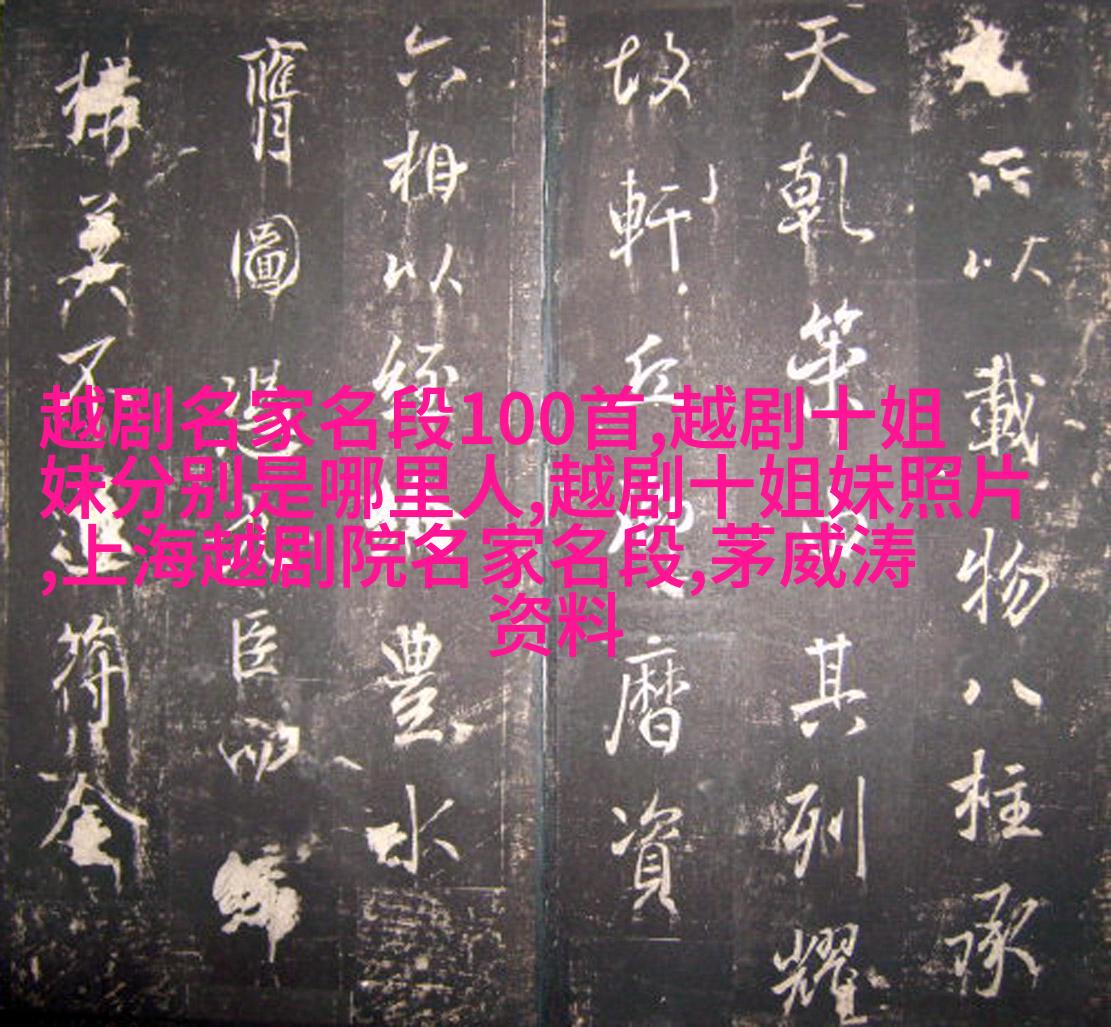 越剧名家名段100首,越剧十姐
妹分别是哪里人,越剧十姐妹照片
,上海越剧院名家名段,茅威涛
资料
所以載物八柱承
天乾其列耀
故軒丘曆資
六相以經豐水
膺圖臣
構莫不符